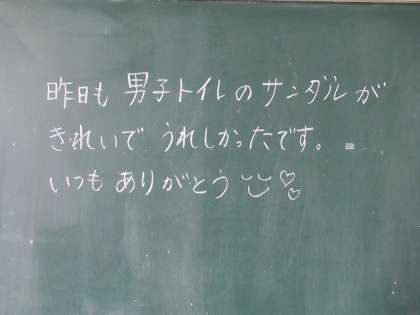 昨日も 男子トイレのサンダルが
きれいで うれしかったです。
いつも ありがとう